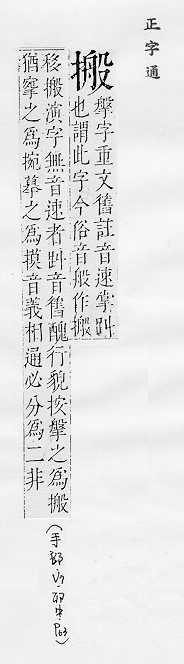 正字通
搬
搫字重文舊註音速
也謂此字今俗音般作搬
移搬演字無音速者音舊醜行貌按搫之爲搬
猶掔之爲捥摹之爲摸音義相通必分爲二非
(手部